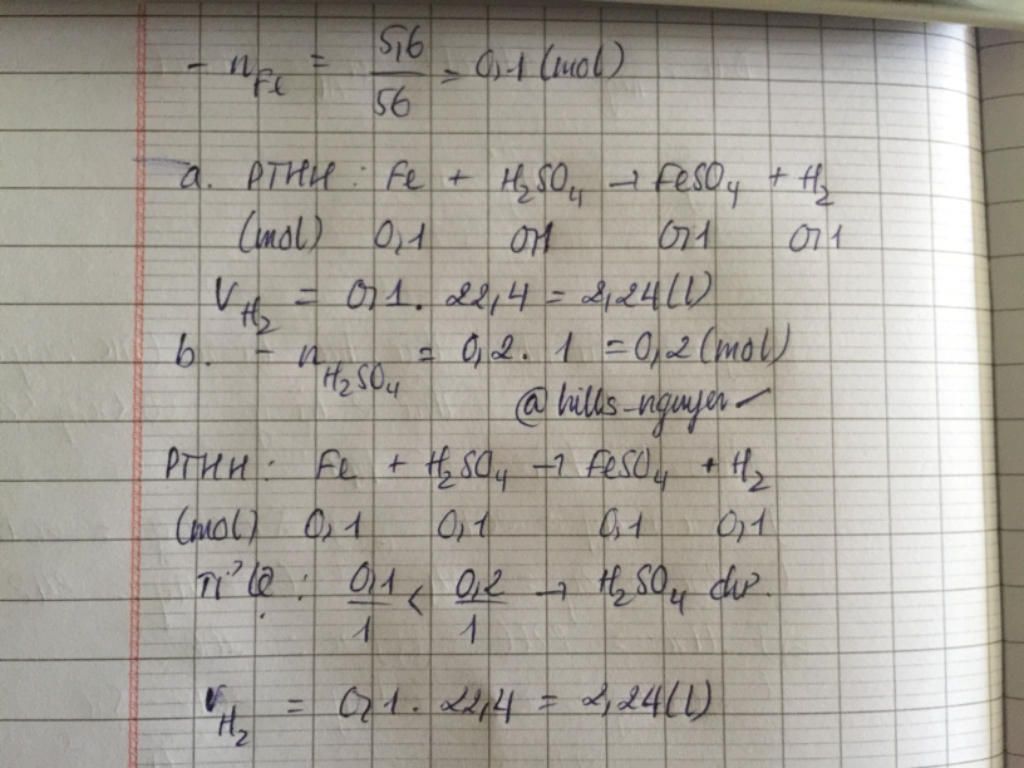 - nFe = 5,6/56 = 0,1 (mol)
a. PTHH : Fe + H₂SO₄ → FeSO₄ + H₂
(mol) 0,1 0,1 0,1 0,1
VH₂ = 0,1 . 22,4 = 2,24(l)
b. - nH₂SO₄ = 0,2 . 1 = 0,2 (mol)
@hills_nguyen
PTHH : Fe + H₂SO₄ → FeSO₄ + H₂
(mol) 0,1 0,1 0,1 0,1
Tỉ lệ : 0,1/1 < 0,2/1 → H₂SO₄ dư.
VH₂ = 0,1 . 22,4 = 2,24(l)